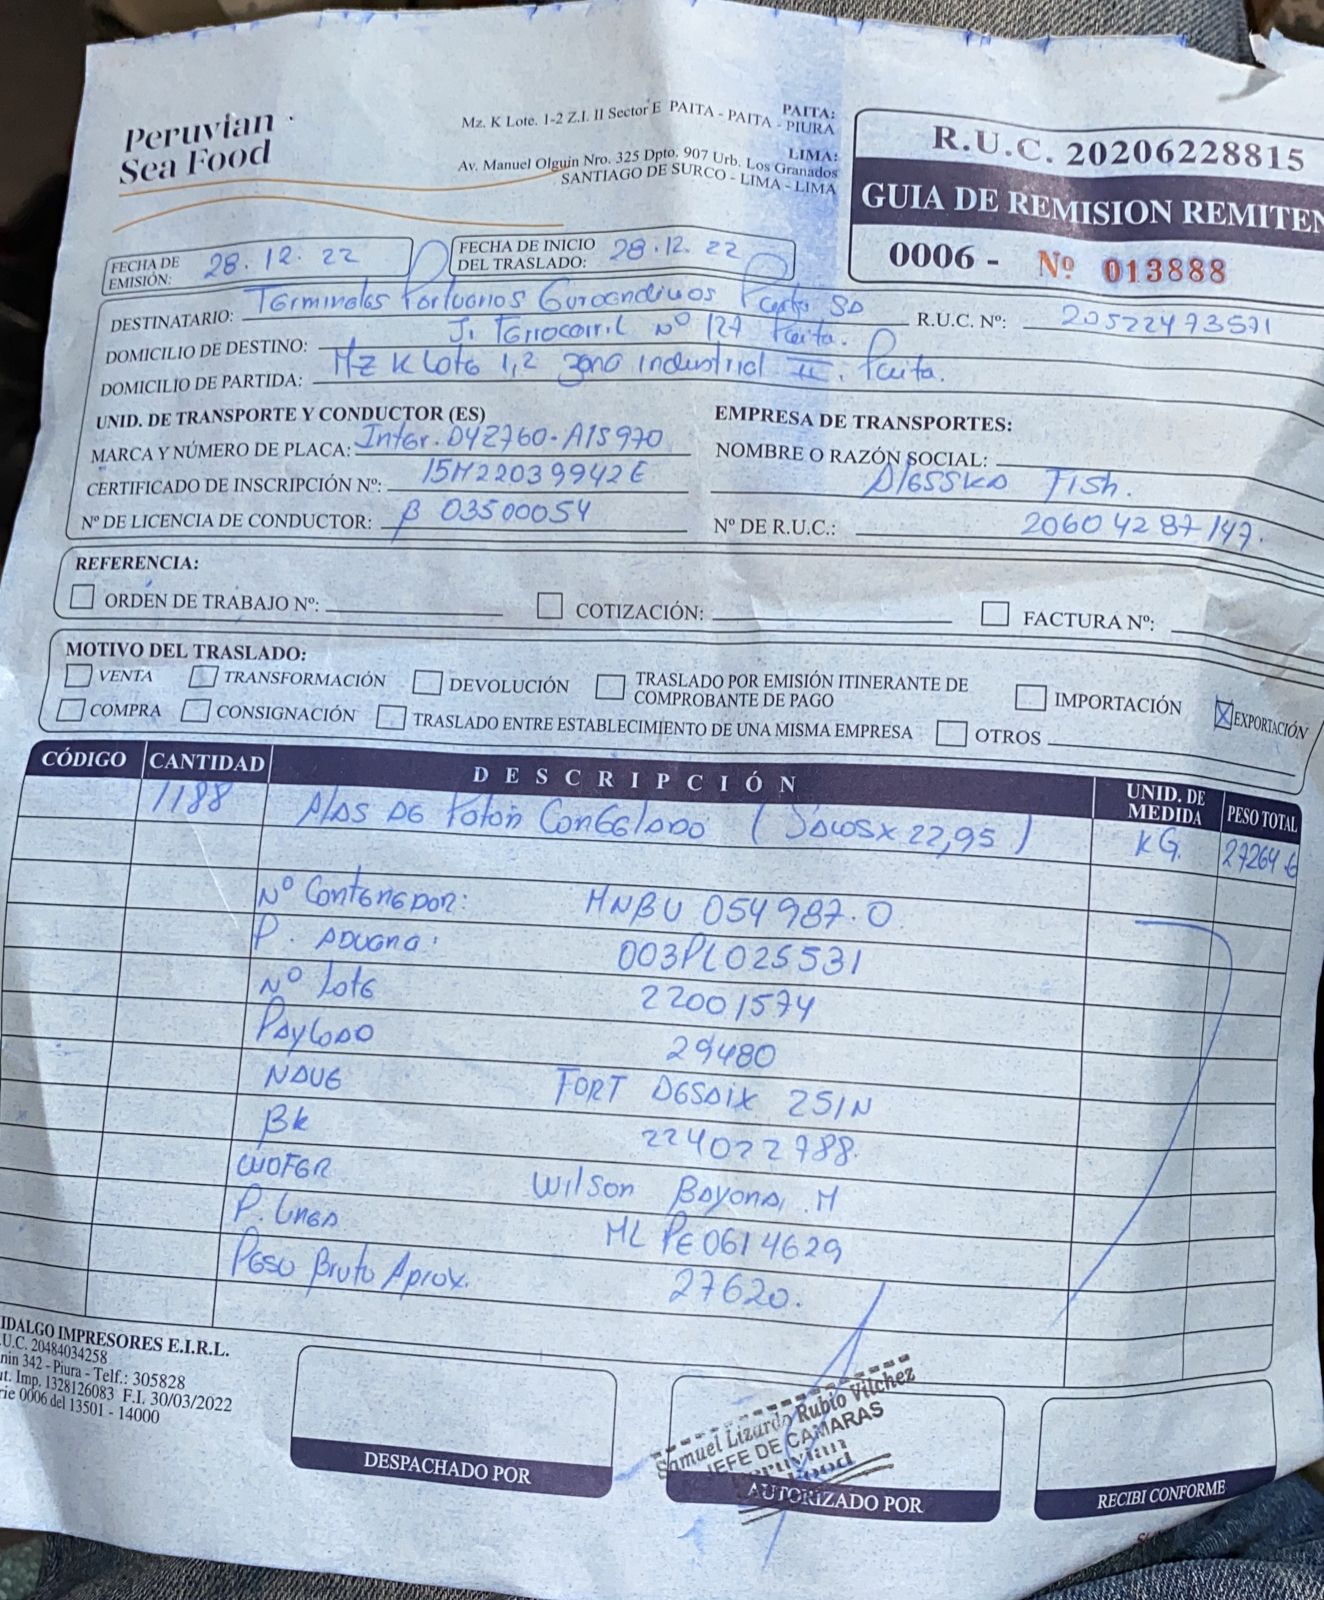 Peruvian
Sea Food
PAITA:
Mz. K Lote. 1-2 Z.I. II Sector E PAITA - PAITA - PIURA
LIMA:
Av. Manuel Olguin Nro. 325 Dpto. 907 Urb. Los Granados
SANTIAGO DE SURCO - LIMA - LIMA
R.U.C. 20206228815
GUIA DE REMISION REMITEN
0006 - Nº 013888
FECHA DE EMISIÓN: 28.12.22
FECHA DE INICIO DEL TRASLADO: 28.12.22
DESTINATARIO: Terminales Portuarios Euroandinos Paita SA
R.U.C. Nº: 20522473571
DOMICILIO DE DESTINO: Jr Ferrocarril Nº 127 Paita.
DOMICILIO DE PARTIDA: Mz K Lote 1,2 zona industrial II. Paita.
UNID. DE TRANSPORTE Y CONDUCTOR (ES)
MARCA Y NÚMERO DE PLACA: Inter. D4Z760-A1S970
CERTIFICADO DE INSCRIPCIÓN Nº: 15M22039942E
Nº DE LICENCIA DE CONDUCTOR: B 03500054
EMPRESA DE TRANSPORTES:
NOMBRE O RAZÓN SOCIAL:
Alesska Fish.
Nº DE R.U.C.: 20604287147.
REFERENCIA:
ORDEN DE TRABAJO Nº: COTIZACIÓN: FACTURA Nº:
MOTIVO DEL TRASLADO:
VENTA TRANSFORMACIÓN DEVOLUCIÓN TRASLADO POR EMISIÓN ITINERANTE DE COMPROBANTE DE PAGO IMPORTACIÓN X EXPORTACIÓN
COMPRA CONSIGNACIÓN TRASLADO ENTRE ESTABLECIMIENTO DE UNA MISMA EMPRESA OTROS
CÓDIGO CANTIDAD DESCRIPCIÓN UNID. DE MEDIDA PESO TOTAL
1188 Alas de Poton Congelado (Sacos x 22,95) KG. 27264.6
Nº Contenedor: MNBU 054987.0
P. Aduana: 003PL025531
Nº Lote 22001574
Payload 29480
Nave FORT DESAIX 251N
Bk 224022788.
CHOFER Wilson Bayona, M
P. Linea ML PE0614629
Peso Bruto Aprox. 27620.
IDALGO IMPRESORES E.I.R.L.
.U.C. 20484034258
nin 342 - Piura - Telf.: 305828
ut. Imp. 1328126083 F.I. 30/03/2022
rie 0006 del 13501 - 14000
DESPACHADO POR
Samuel Lizardo Rubio Vilchez
JEFE DE CAMARAS
Peruvian
Food
AUTORIZADO POR
RECIBI CONFORME